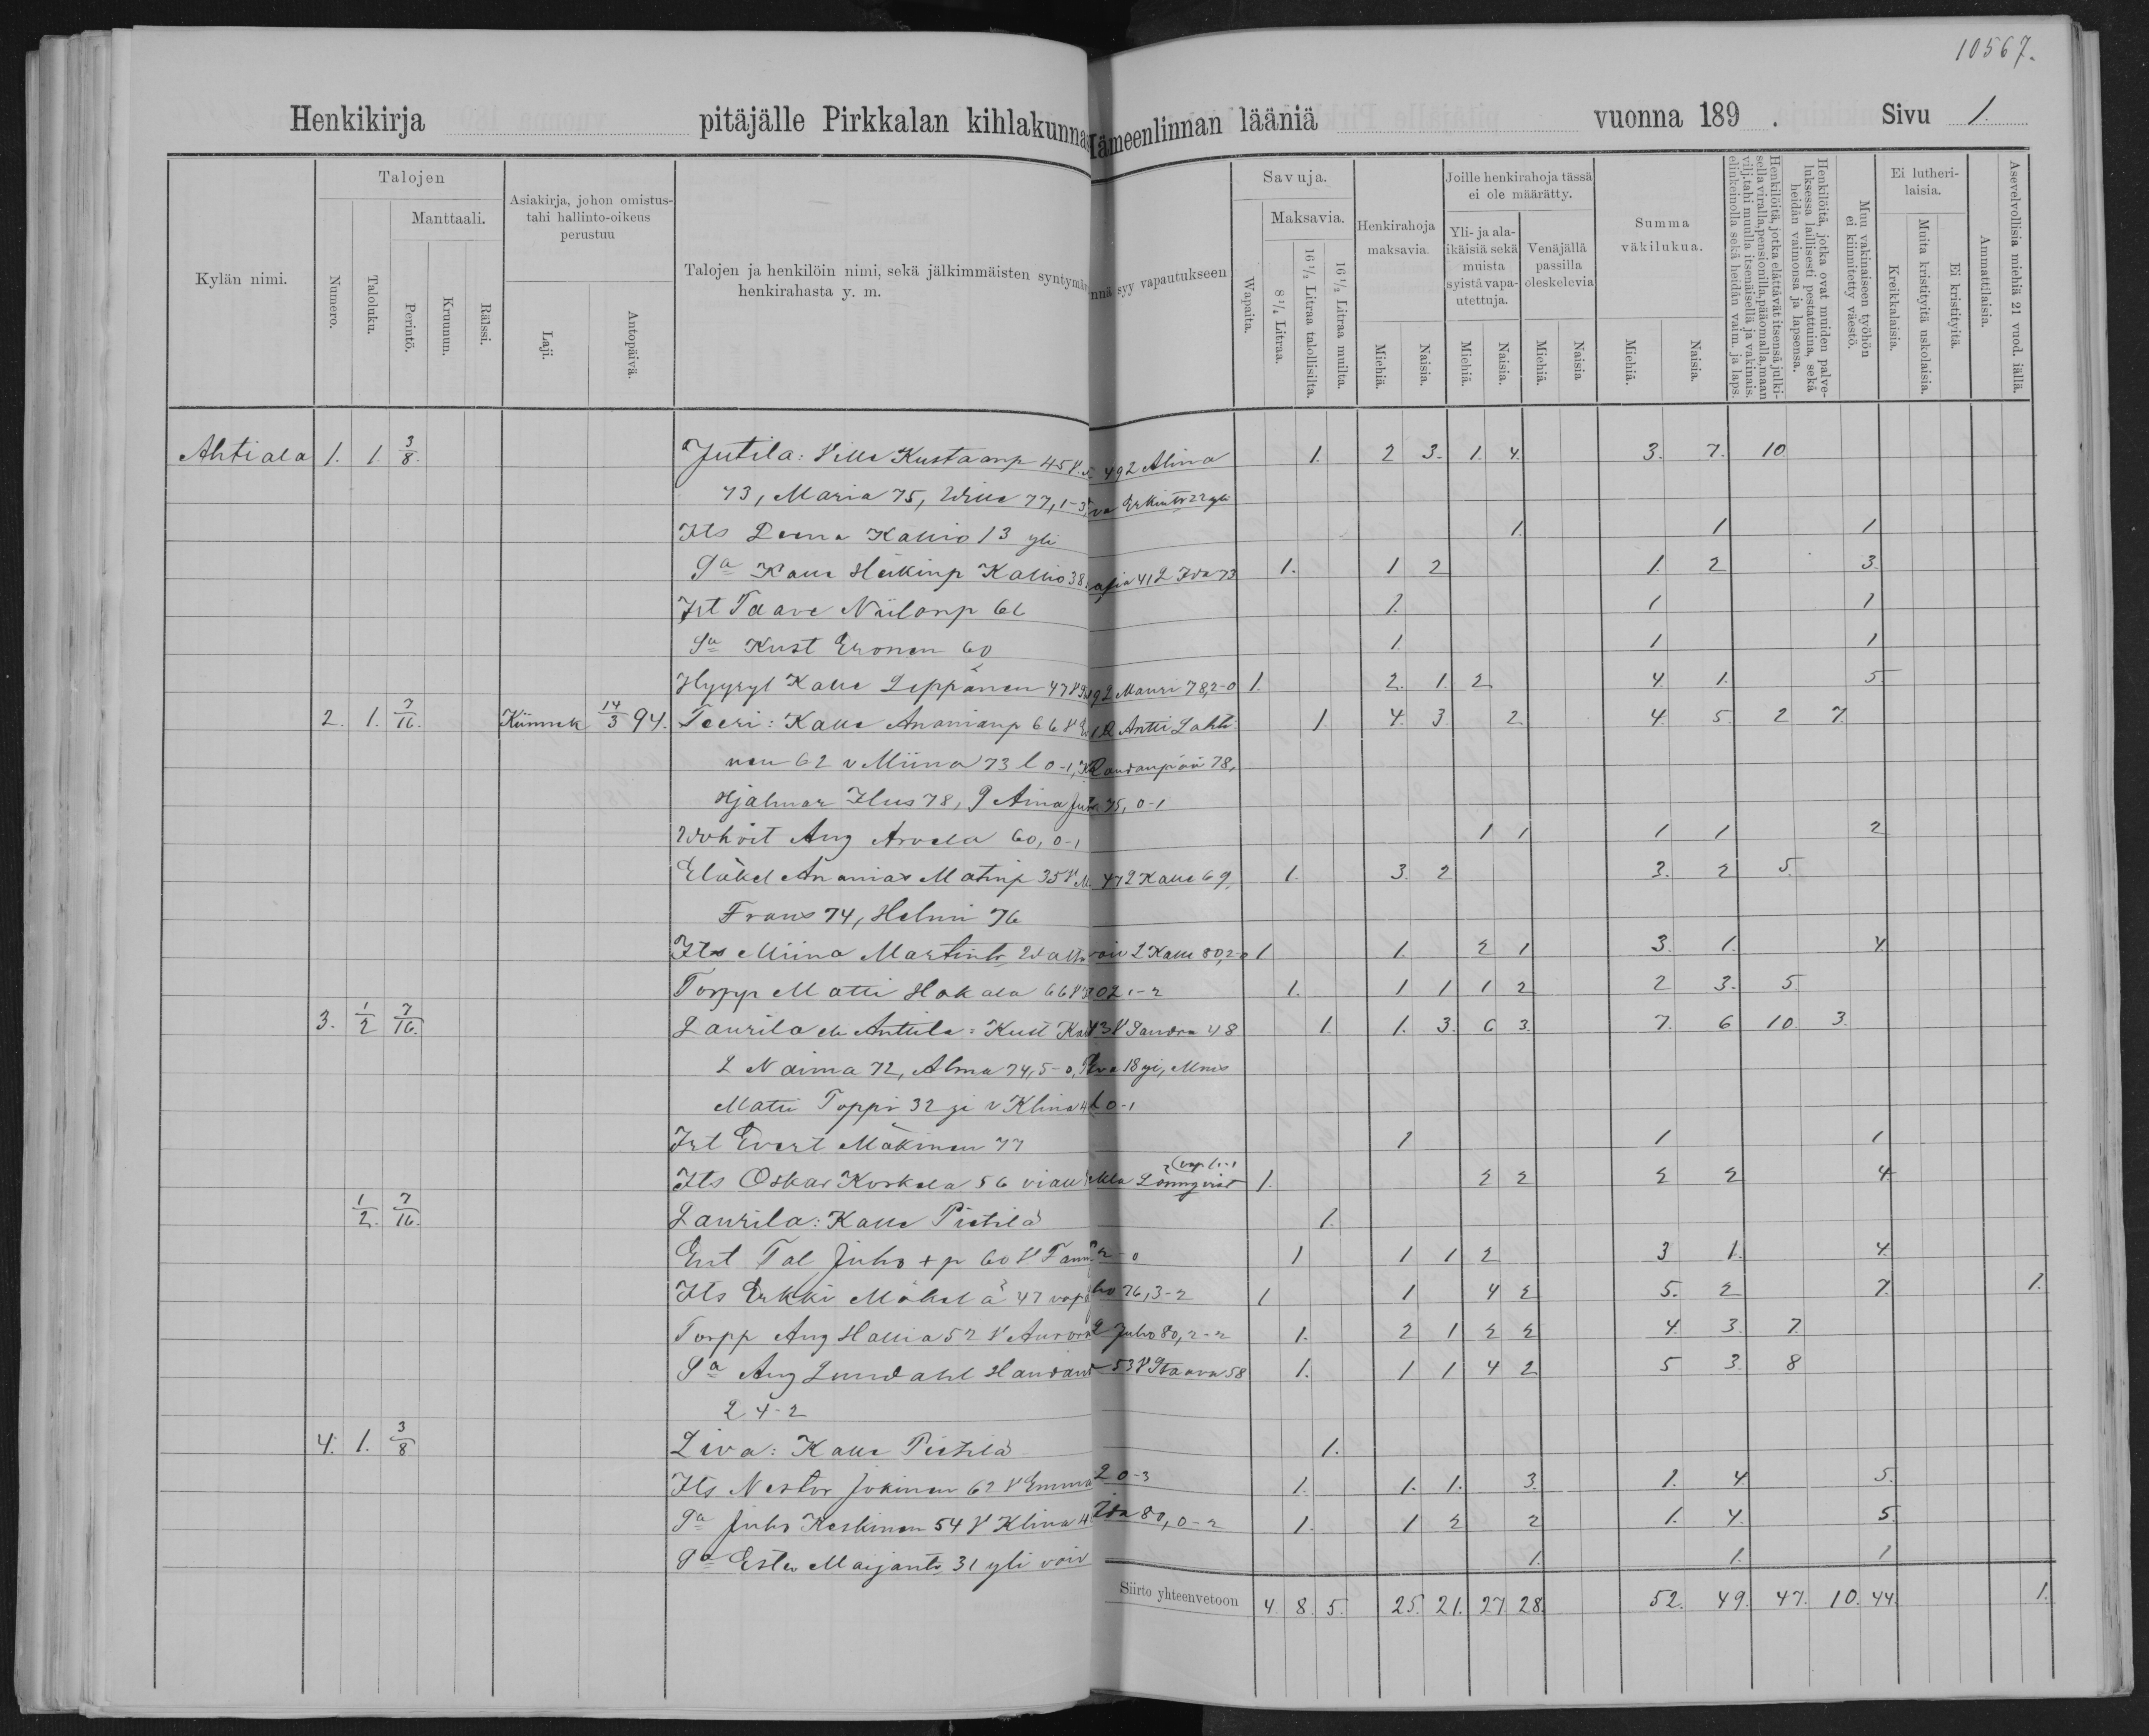 10567.
Henkikirja pitäjälle Pirkkalan kihlakunnas Hämeenlinnan lääniä vuonna 189 . Sivu 1.
Kylän nimi.
Talojen
Numero.
Taloluku.
Manttaali.
Perintö.
Kruunun.
Rälssi.
Asiakirja, johon omistus-
tahi hallinto-oikeus
perustuu
Laji.
Antopäivä.
Talojen ja henkilöin nimi, sekä jälkimmäisten syntymä nnä syy vapautukseen
henkirahasta y. m.
Savuja.
Wapaita.
Maksavia.
8 1/4 Litraa.
16 1/2 Litraa talollisilta.
16 1/2 Litraa muilta.
Henkirahoja
maksavia.
Miehiä.
Naisia.
Joille henkirahoja tässä
ei ole määrätty.
Yli- ja ala-
ikäisiä sekä
muista
syistä vapa-
utettuja.
Miehiä.
Naisia.
Venäjällä
passilla
oleskelevia
Miehiä.
Naisia
Summa
väkilukua.
Miehiä.
Naisia.
Henkilöitä, jotka elättävät itsensä julki-
sella viralla, pensionilla, pääomalla, maan
vilj. tahi muulla itsenäisellä ja vakinais.
elinkeinolla sekä heidän vaim. ja laps.
Henkilöitä, jotka ovat muiden palve-
luksessa laillisesti pestattuina, sekä
heidän vaimonsa ja lapsensa.
Muu vakinaiseen työhön
ei kiinnitetty väestö.
Ei lutheri-
laisia.
Kreikkalaisia.
Muita kristityitä uskolaisia.
Ei kristityitä.
Ammattilaisia.
Asevelvollisia miehiä 21 vuod. iällä.
Ahtiala 1. 1. 3/8. Jutila: Ville Kustaanp 45 V. 49 L Alina 1. 2 3. 1. 4. 3. 7. 10
73, Maria 75, Wille 77, 1-3, Erkintr 22 yli
Its Leena Kallio 13 yli 1. 1 1
Sa Kalle Heikinp Kallio 38 41 L Ida 73 1. 1 2 1. 2 3.
Irt Taave Niilonp 66 1. 1 1
Sa Kust Eronen 60 1. 1 1
Hyyryl Kalle Leppänen 47 V L Mauri 78, 2-0 1. 2. 1. 2 4. 1. 5
2. 1. 7/16. 14/3 94. Teeri: Kalle Ananianp 66 V Antti Lahti 1. 4. 3. 2 4. 5. 2 7.
nen 62 v Miina 73 l 0-1, 78,
Hjalmar Ilus 78, P Aina 75, 0-1
Aug Arvela 60, 0-1 1 1 1 1 2
Eläkel Ananias Matinp 35 V 47 L Kalle 69, 1. 3. 2 3. 2 5.
Frans 74, Helmi 76
Its Miina Martintr L Kalle 80, 2-0 1 1. 2 1 3. 1. 4.
Torpp Matti Hakala 66 V 1-2 1. 1 1 1 2 2 3. 5.
3. 1/2 7/16. Laurila eli Anttila: Kust V Sandra 48 1. 1. 3. 6 3. 7. 6 10 3.
L Naima 72, Alma 74, 5-0, 18 yi,
Matti Toppi 32 yi v Klina 0-1
Irt Evert Mäkinen 77 1 1 1
Its Oskar Koskela 56 Lönnqvist 1. 2 2 2 2 4
1/2. 7/16. Laurila: Kalle Pietilä 1.
Ent Tal Juho + p 60 V 2-0 1 1 1 2 3 1. 4.
Its Erkki Mäkelä 47 76, 3-2 1 1 4 2 5. 2 7. 1.
Torpp Aug Hallia 52 V Aurora L Juho 80, 2-2 1. 2 1 2 2 4. 3. 7.
Sa Aug Lundahl 53 V 58 1. 1 1 4 2 5 3. 8
L 4-2
4. 1. 3/8 Liva: Kalle Pietilä 1.
Its Nestor Jokinen 62 V Emma L 0-3 1. 1. 1. 3. 1. 4. 5.
Sa Juho Keskinen 54 V Klina Ida 80, 0-2 1. 1 2 2 1. 4. 5.
Sa Ester Maijantr 31 yli 1. 1. 1
Siirto yhteenvetoon 4. 8. 5. 25. 21. 27. 28. 52. 49. 47. 10. 44. 1.